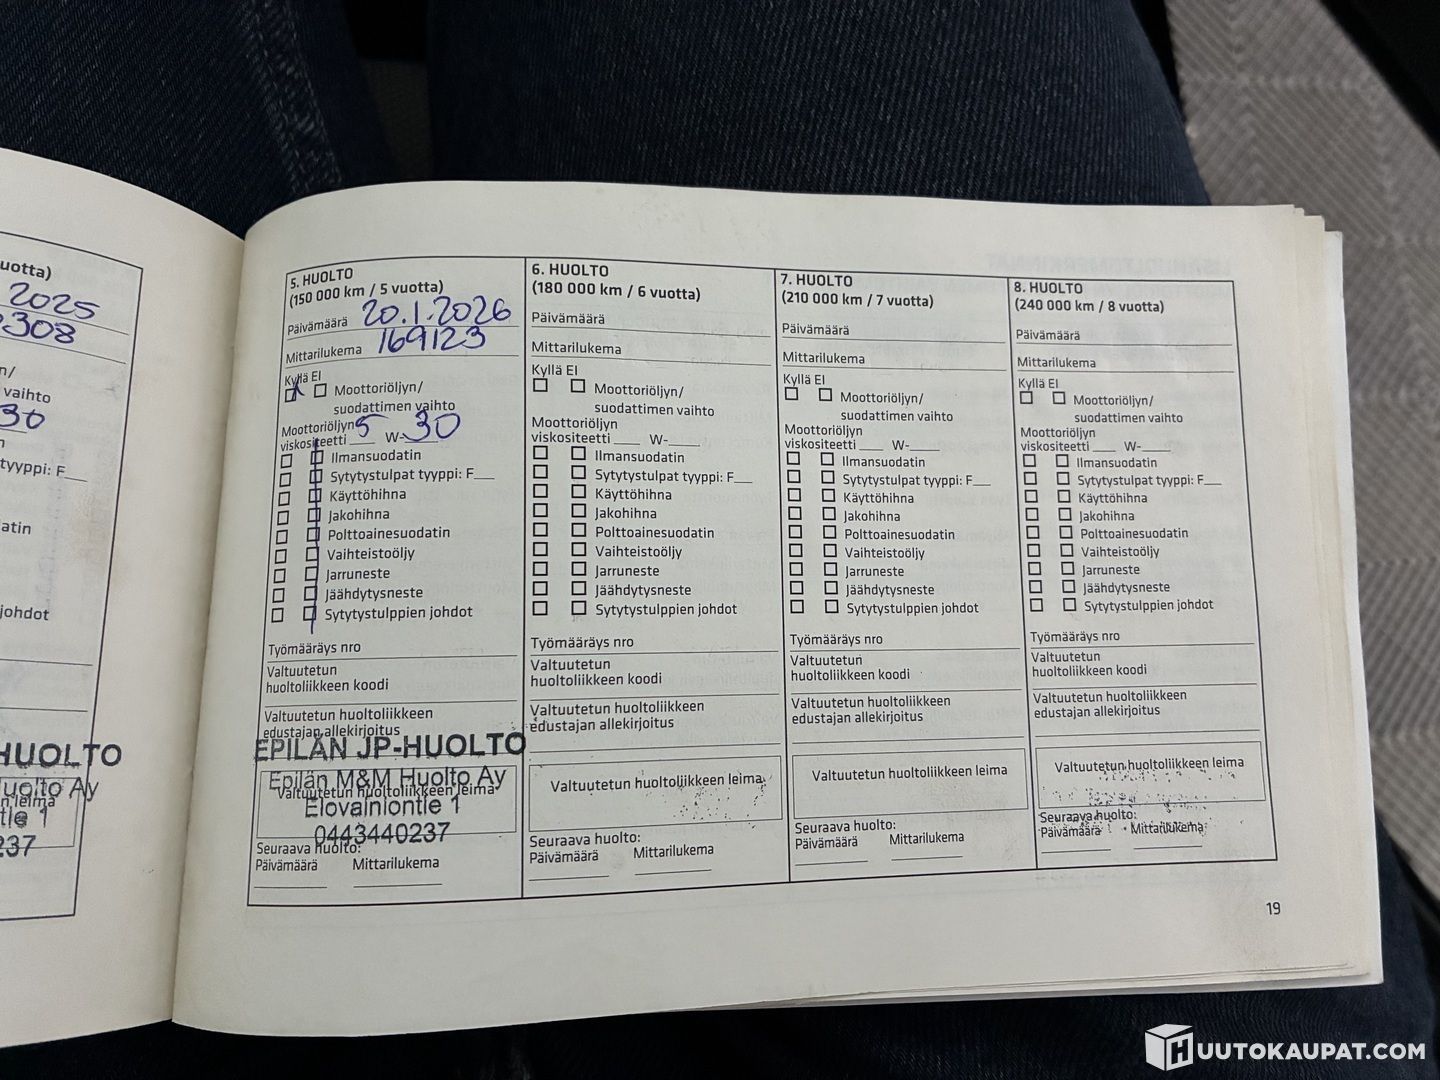 uotta)
2025
308
n/
vaihto
30
n
tyyppi: F__
atin
johdot
HUOLTO
Huolto Ay
n leima
tie 1
237
5. HUOLTO
(150 000 km / 5 vuotta)
Päivämäärä 20.1.2026
Mittarilukema 169123
Kyllä EI
Moottoriöljyn/
suodattimen vaihto
Moottoriöljyn
viskositeetti 5 W-30
Ilmansuodatin
Sytytystulpat tyyppi: F__
Käyttöhihna
Jakohihna
Polttoainesuodatin
Vaihteistoöljy
Jarruneste
Jäähdytysneste
Sytytystulppien johdot
Työmääräys nro
Valtuutetun
huoltoliikkeen koodi
Valtuutetun huoltoliikkeen
edustajan allekirjoitus
EPILÄN JP-HUOLTO
Epilän M&M Huolto Ay
Valtuutetun huoltoliikkeen leima
Elovainiontie 1
0443440237
Seuraava huolto:
Päivämäärä Mittarilukema
6. HUOLTO
(180 000 km / 6 vuotta)
Päivämäärä
Mittarilukema
Kyllä EI
Moottoriöljyn/
suodattimen vaihto
Moottoriöljyn
viskositeetti ___ W-____
Ilmansuodatin
Sytytystulpat tyyppi: F__
Käyttöhihna
Jakohihna
Polttoainesuodatin
Vaihteistoöljy
Jarruneste
Jäähdytysneste
Sytytystulppien johdot
Työmääräys nro
Valtuutetun
huoltoliikkeen koodi
Valtuutetun huoltoliikkeen
edustajan allekirjoitus
Valtuutetun huoltoliikkeen leima
Seuraava huolto:
Päivämäärä Mittarilukema
7. HUOLTO
(210 000 km / 7 vuotta)
Päivämäärä
Mittarilukema
Kyllä EI
Moottoriöljyn/
suodattimen vaihto
Moottoriöljyn
viskositeetti ___ W-____
Ilmansuodatin
Sytytystulpat tyyppi: F__
Käyttöhihna
Jakohihna
Polttoainesuodatin
Vaihteistoöljy
Jarruneste
Jäähdytysneste
Sytytystulppien johdot
Työmääräys nro
Valtuutetun
huoltoliikkeen koodi
Valtuutetun huoltoliikkeen
edustajan allekirjoitus
Valtuutetun huoltoliikkeen leima
Seuraava huolto:
Päivämäärä Mittarilukema
8. HUOLTO
(240 000 km / 8 vuotta)
Päivämäärä
Mittarilukema
Kyllä EI
Moottoriöljyn/
suodattimen vaihto
Moottoriöljyn
viskositeetti ___ W-____
Ilmansuodatin
Sytytystulpat tyyppi: F__
Käyttöhihna
Jakohihna
Polttoainesuodatin
Vaihteistoöljy
Jarruneste
Jäähdytysneste
Sytytystulppien johdot
Työmääräys nro
Valtuutetun
huoltoliikkeen koodi
Valtuutetun huoltoliikkeen
edustajan allekirjoitus
Valtuutetun huoltoliikkeen leima
Seuraava huolto:
Päivämäärä Mittarilukema
19
HUUTOKAUPAT.COM